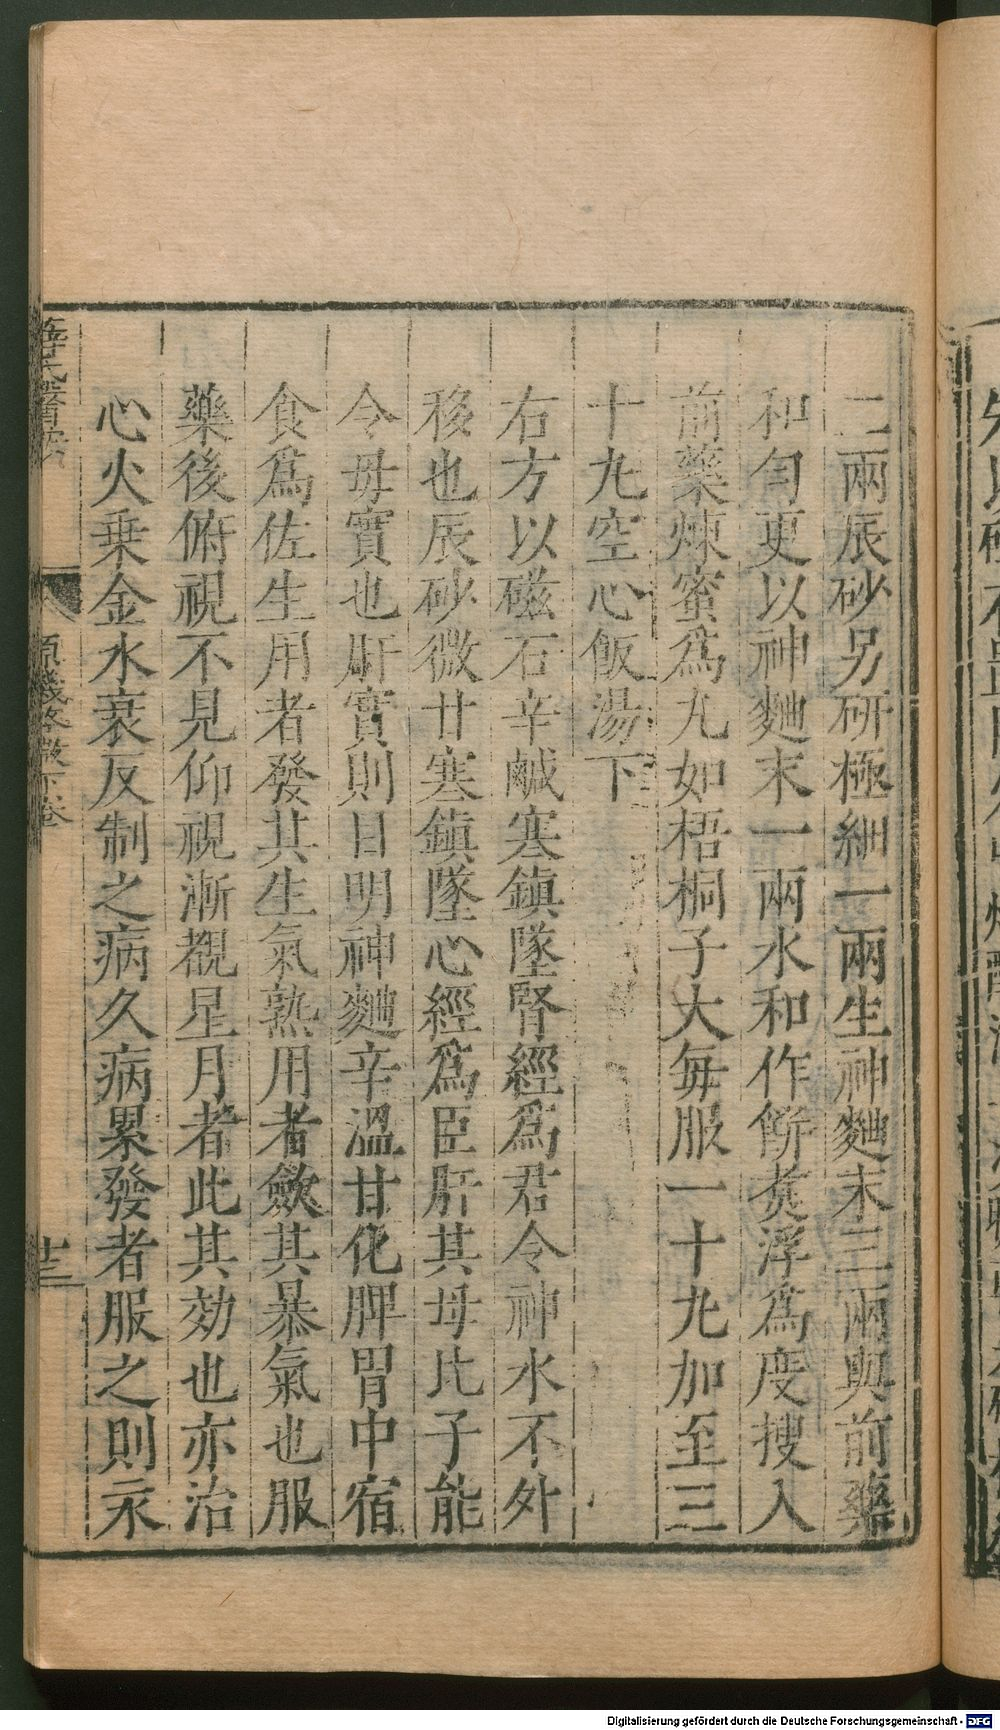 二兩辰砂另研極細一兩生神麯末三兩與前藥
和勻更以神麯末一兩水和作餅煑浮爲度搜入
前藥煉蜜爲丸如梧桐子大每服一十丸加至三
十丸空心飯湯下
右方以磁石辛鹹寒鎮墜腎經爲君令神水不外
移也辰砂微甘寒鎮墜心經爲臣肝其母比子能
令母實也肝實則目明神麯辛溫甘化脾胃中宿
食爲佐生用者發其生氣熟用者斂其暴氣也服
藥後俯視不見仰視漸覩星月者此其効也亦治
心火乗金水衰反制之病久病累發者服之則永
原機啓微下卷
廿三
Digitalisierung gefördert durch die Deutsche Forschungsgemeinschaft - DFG